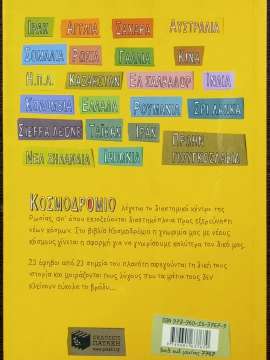 ΙΡΑΚ ΑΓΓΛΙΑ ΣΑΧΑΡΑ ΑΥΣΤΡΑΛΙΑ
ΣΟΜΑΛΙΑ ΡΩΣΙΑ ΓΑΛΛΙΑ ΚΙΝΑ
Η.Π.Α. ΚΑΖΑΚΣΤΑΝ ΕΛ ΣΑΛΒΑΔΟΡ ΙΝΔΙΑ
ΚΟΛΟΜΒΙΑ ΕΛΛΑΔΑ ΡΟΥΜΑΝΙΑ ΣΡΙ ΛΑΝΚΑ
ΣΙΕΡΡΑ ΛΕΟΝΕ ΤΑΪΒΑΝ ΙΡΑΝ ΠΡΩΗΝ
ΓΙΟΥΓΚΟΣΛΑΒΙΑ
ΝΕΑ ΖΗΛΑΝΔΙΑ ΙΑΠΩΝΙΑ
ΚΟΣΜΟΔΡΟΜΙΟ λέγεται το διαστημικό κέντρο της
Ρωσίας, απ' όπου εκτοξεύονται διαστημόπλοια προς εξερεύνηση
νέων κόσμων. Στο βιβλίο Κοσμοδρόμιο η γνωριμία μας με νέους
κόσμους γίνεται η αφορμή για να γνωρίσουμε καλύτερα τον δικό μας.
23 έφηβοι από 23 σημεία του πλανήτη αφηγούνται τη δική τους
ιστορία και μοιράζονται τους λόγους που τα μάτια τους δεν
κλείνουν εύκολα το βράδυ...
ΕΚΔΟΣΕΙΣ
ΠΑΤΑΚΗ